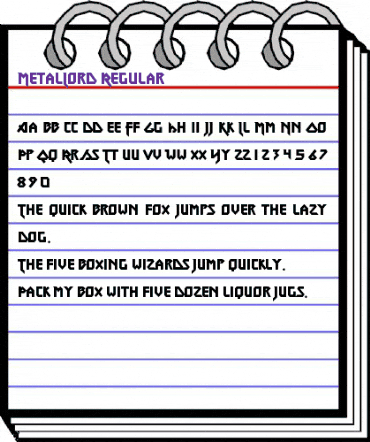 METALLORD REGULAR
AA BB CC DD EE FF GG HH II JJ KK LL MM NN OO
PP QQ RR SS TT UU VV WW XX YY ZZ 1 2 3 4 5 6 7
8 9 0
THE QUICK BROWN FOX JUMPS OVER THE LAZY
DOG.
THE FIVE BOXING WIZARDS JUMP QUICKLY.
PACK MY BOX WITH FIVE DOZEN LIQUOR JUGS.